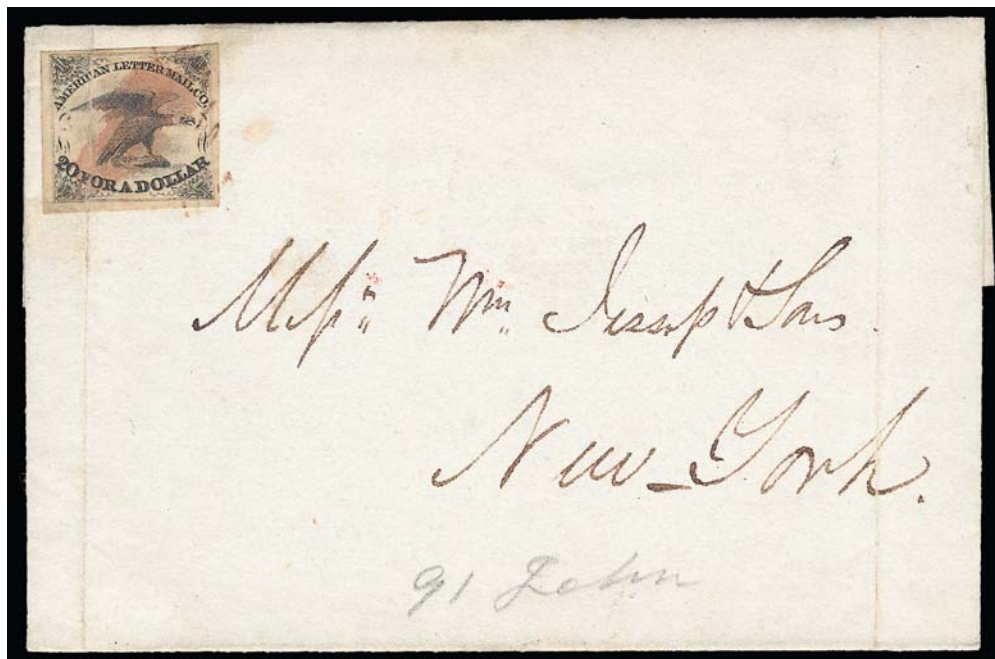 AMERICAN LETTER MAIL CO.
20 FOR A DOLLAR
Messrs Wm Jessop & Sons
New-York.
91 John